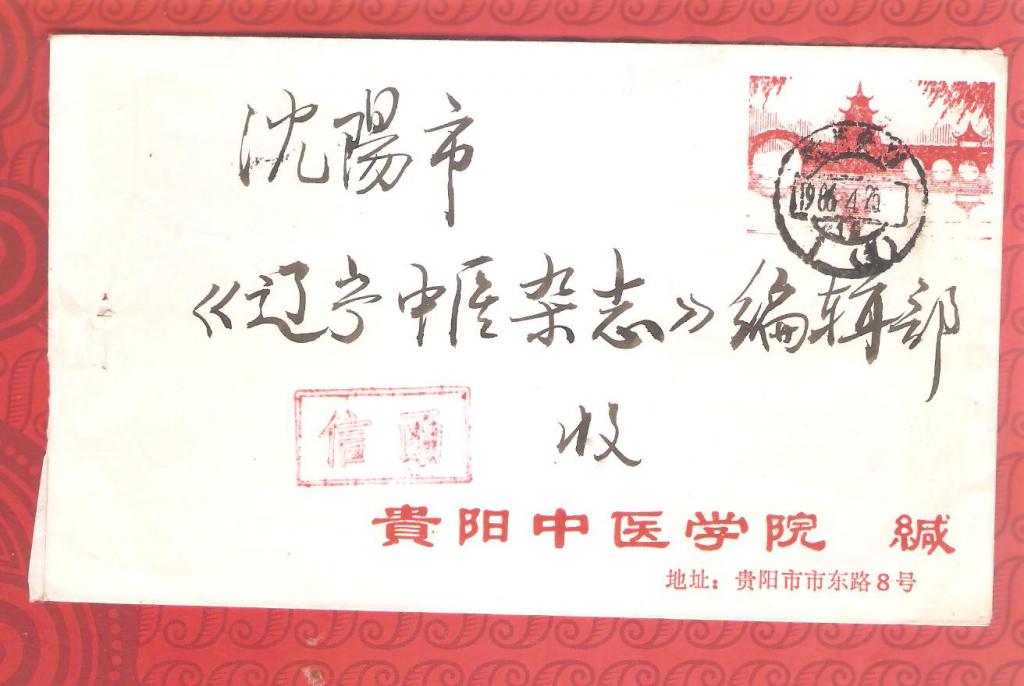 沈陽市
《辽宁中医杂志》编辑部
收
信函
貴阳中医学院 緘
地址：贵阳市市东路8号